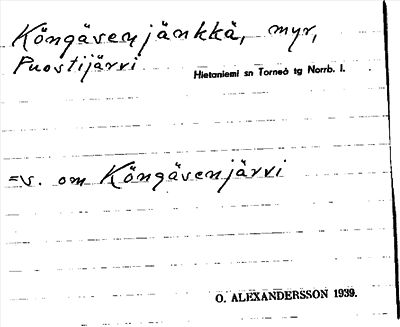 Köngäsenjänkkä, myr,
Puostijärvi Hietaniemi sn Torneå tg Norrb. l.
=v. om Köngäsenjärvi
O. ALEXANDERSSON 1939.